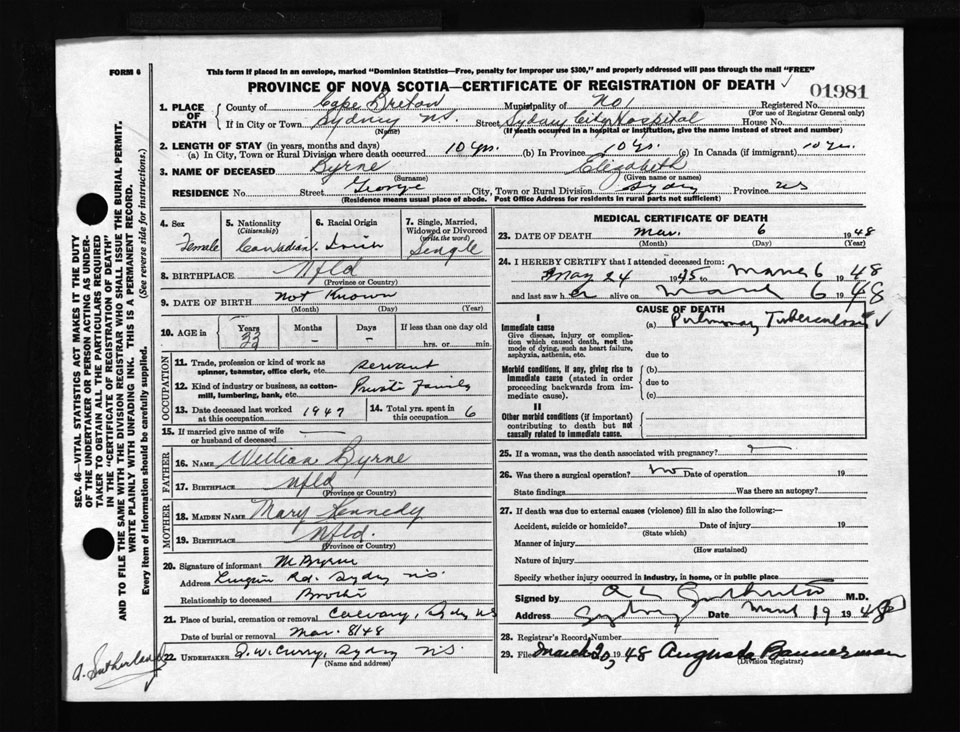 FORM 6
This form if placed in an envelope, marked "Dominion Statistics—Free, penalty for improper use $300," and properly addressed will pass through the mail "FREE"
PROVINCE OF NOVA SCOTIA—CERTIFICATE OF REGISTRATION OF DEATH ✓
01981
1. PLACE OF DEATH County of Cape Breton Municipality of No 1 Registered No.
(For use of Registrar General only)
If in City or Town Sydney N.S. Street Sydney City Hospital House No.
(Name) (If death occurred in a hospital or institution, give the name instead of street and number)
2. LENGTH OF STAY (in years, months and days)
(a) In City, Town or Rural Division where death occurred 10 yrs. (b) In Province 10 yrs. (c) In Canada (if immigrant) 10 yrs.
3. NAME OF DECEASED Byrne Elizabeth
(Surname) (Given name or names)
RESIDENCE No. Street George City, Town or Rural Division Sydney Province NS
(Residence means usual place of abode. Post Office Address for residents in rural parts not sufficient)
4. Sex Female
5. Nationality (Citizenship) Canadian
6. Racial Origin Irish
7. Single, Married, Widowed or Divorced (write the word) Single
8. BIRTHPLACE Nfld
(Province or Country)
9. DATE OF BIRTH Not Known
(Month) (Day) (Year)
10. AGE in Years Months – Days – If less than one day old hrs. or min.
OCCUPATION
11. Trade, profession or kind of work as spinner, teamster, office clerk, etc. Servant
12. Kind of industry or business, as cotton-mill, lumbering, bank, etc. Private Family
13. Date deceased last worked at this occupation 1947
14. Total yrs. spent in this occupation 6
15. If married give name of wife or husband of deceased —
FATHER
16. NAME William Byrne
17. BIRTHPLACE Nfld
(Province or Country)
MOTHER
18. MAIDEN NAME Mary Kennedy
19. BIRTHPLACE Nfld.
(Province or Country)
20. Signature of informant M Byrne
Address Lingan Rd. Sydney N.S.
Relationship to deceased Brother
21. Place of burial, cremation or removal Calvary, Sydney NS
Date of burial or removal Mar. 8/48
22. UNDERTAKER D. W. Curry, Sydney N.S.
(Name and address)
MEDICAL CERTIFICATE OF DEATH
23. DATE OF DEATH Mar. 6 1948
(Month) (Day) (Year)
24. I HEREBY CERTIFY that I attended deceased from:
May 24 1945 to March 6 1948
and last saw h er alive on March 6 1948
CAUSE OF DEATH
I
Immediate cause (a) Pulmonary Tuberculosis ✓
Give disease, injury or complication which caused death, not the mode of dying, such as heart failure, asphyxia, asthenia, etc.
due to
Morbid conditions, if any, giving rise to immediate cause (stated in order proceeding backwards from immediate cause). (b)
due to
(c)
II
Other morbid conditions (if important) contributing to death but not causally related to immediate cause.
25. If a woman, was the death associated with pregnancy?
26. Was there a surgical operation? No Date of operation 19
State findings Was there an autopsy?
27. If death was due to external causes (violence) fill in also the following:—
Accident, suicide or homicide? Date of injury 19
(State which)
Manner of injury
(How sustained)
Nature of injury
Specify whether injury occurred in industry, in home, or in public place
Signed by M.D.
Address Sydney Date March 19 1948
28. Registrar's Record Number
29. Filed March 20, 1948 Augusta Bannerman
(Division Registrar)
SEC. 46—VITAL STATISTICS ACT MAKES IT THE DUTY
OF THE UNDERTAKER OR PERSON ACTING AS UNDER-
TAKER TO OBTAIN ALL THE PARTICULARS REQUIRED
IN THE "CERTIFICATE OF REGISTRATION OF DEATH"
AND TO FILE THE SAME WITH THE DIVISION REGISTRAR WHO SHALL ISSUE THE BURIAL PERMIT.
WRITE PLAINLY WITH UNFADING INK. THIS IS A PERMANENT RECORD.
Every item of information should be carefully supplied. (See reverse side for instructions.)
A. Sutherland